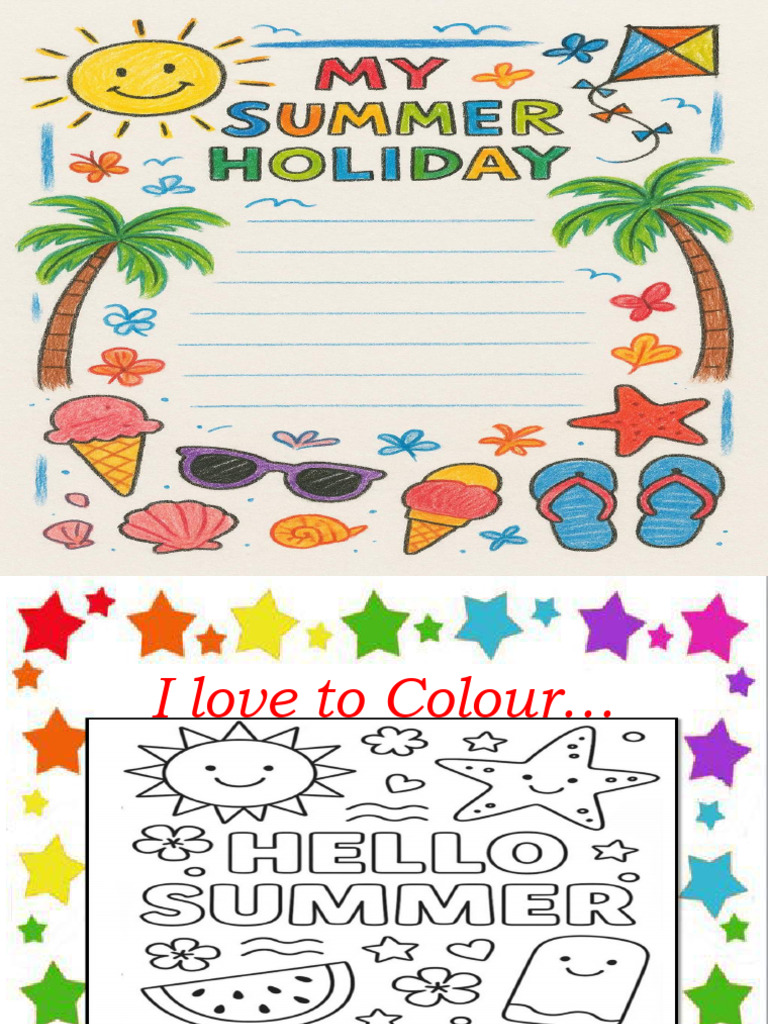 MY
SUMMER
HOLIDAY
I love to Colour...
HELLO
SUMMER